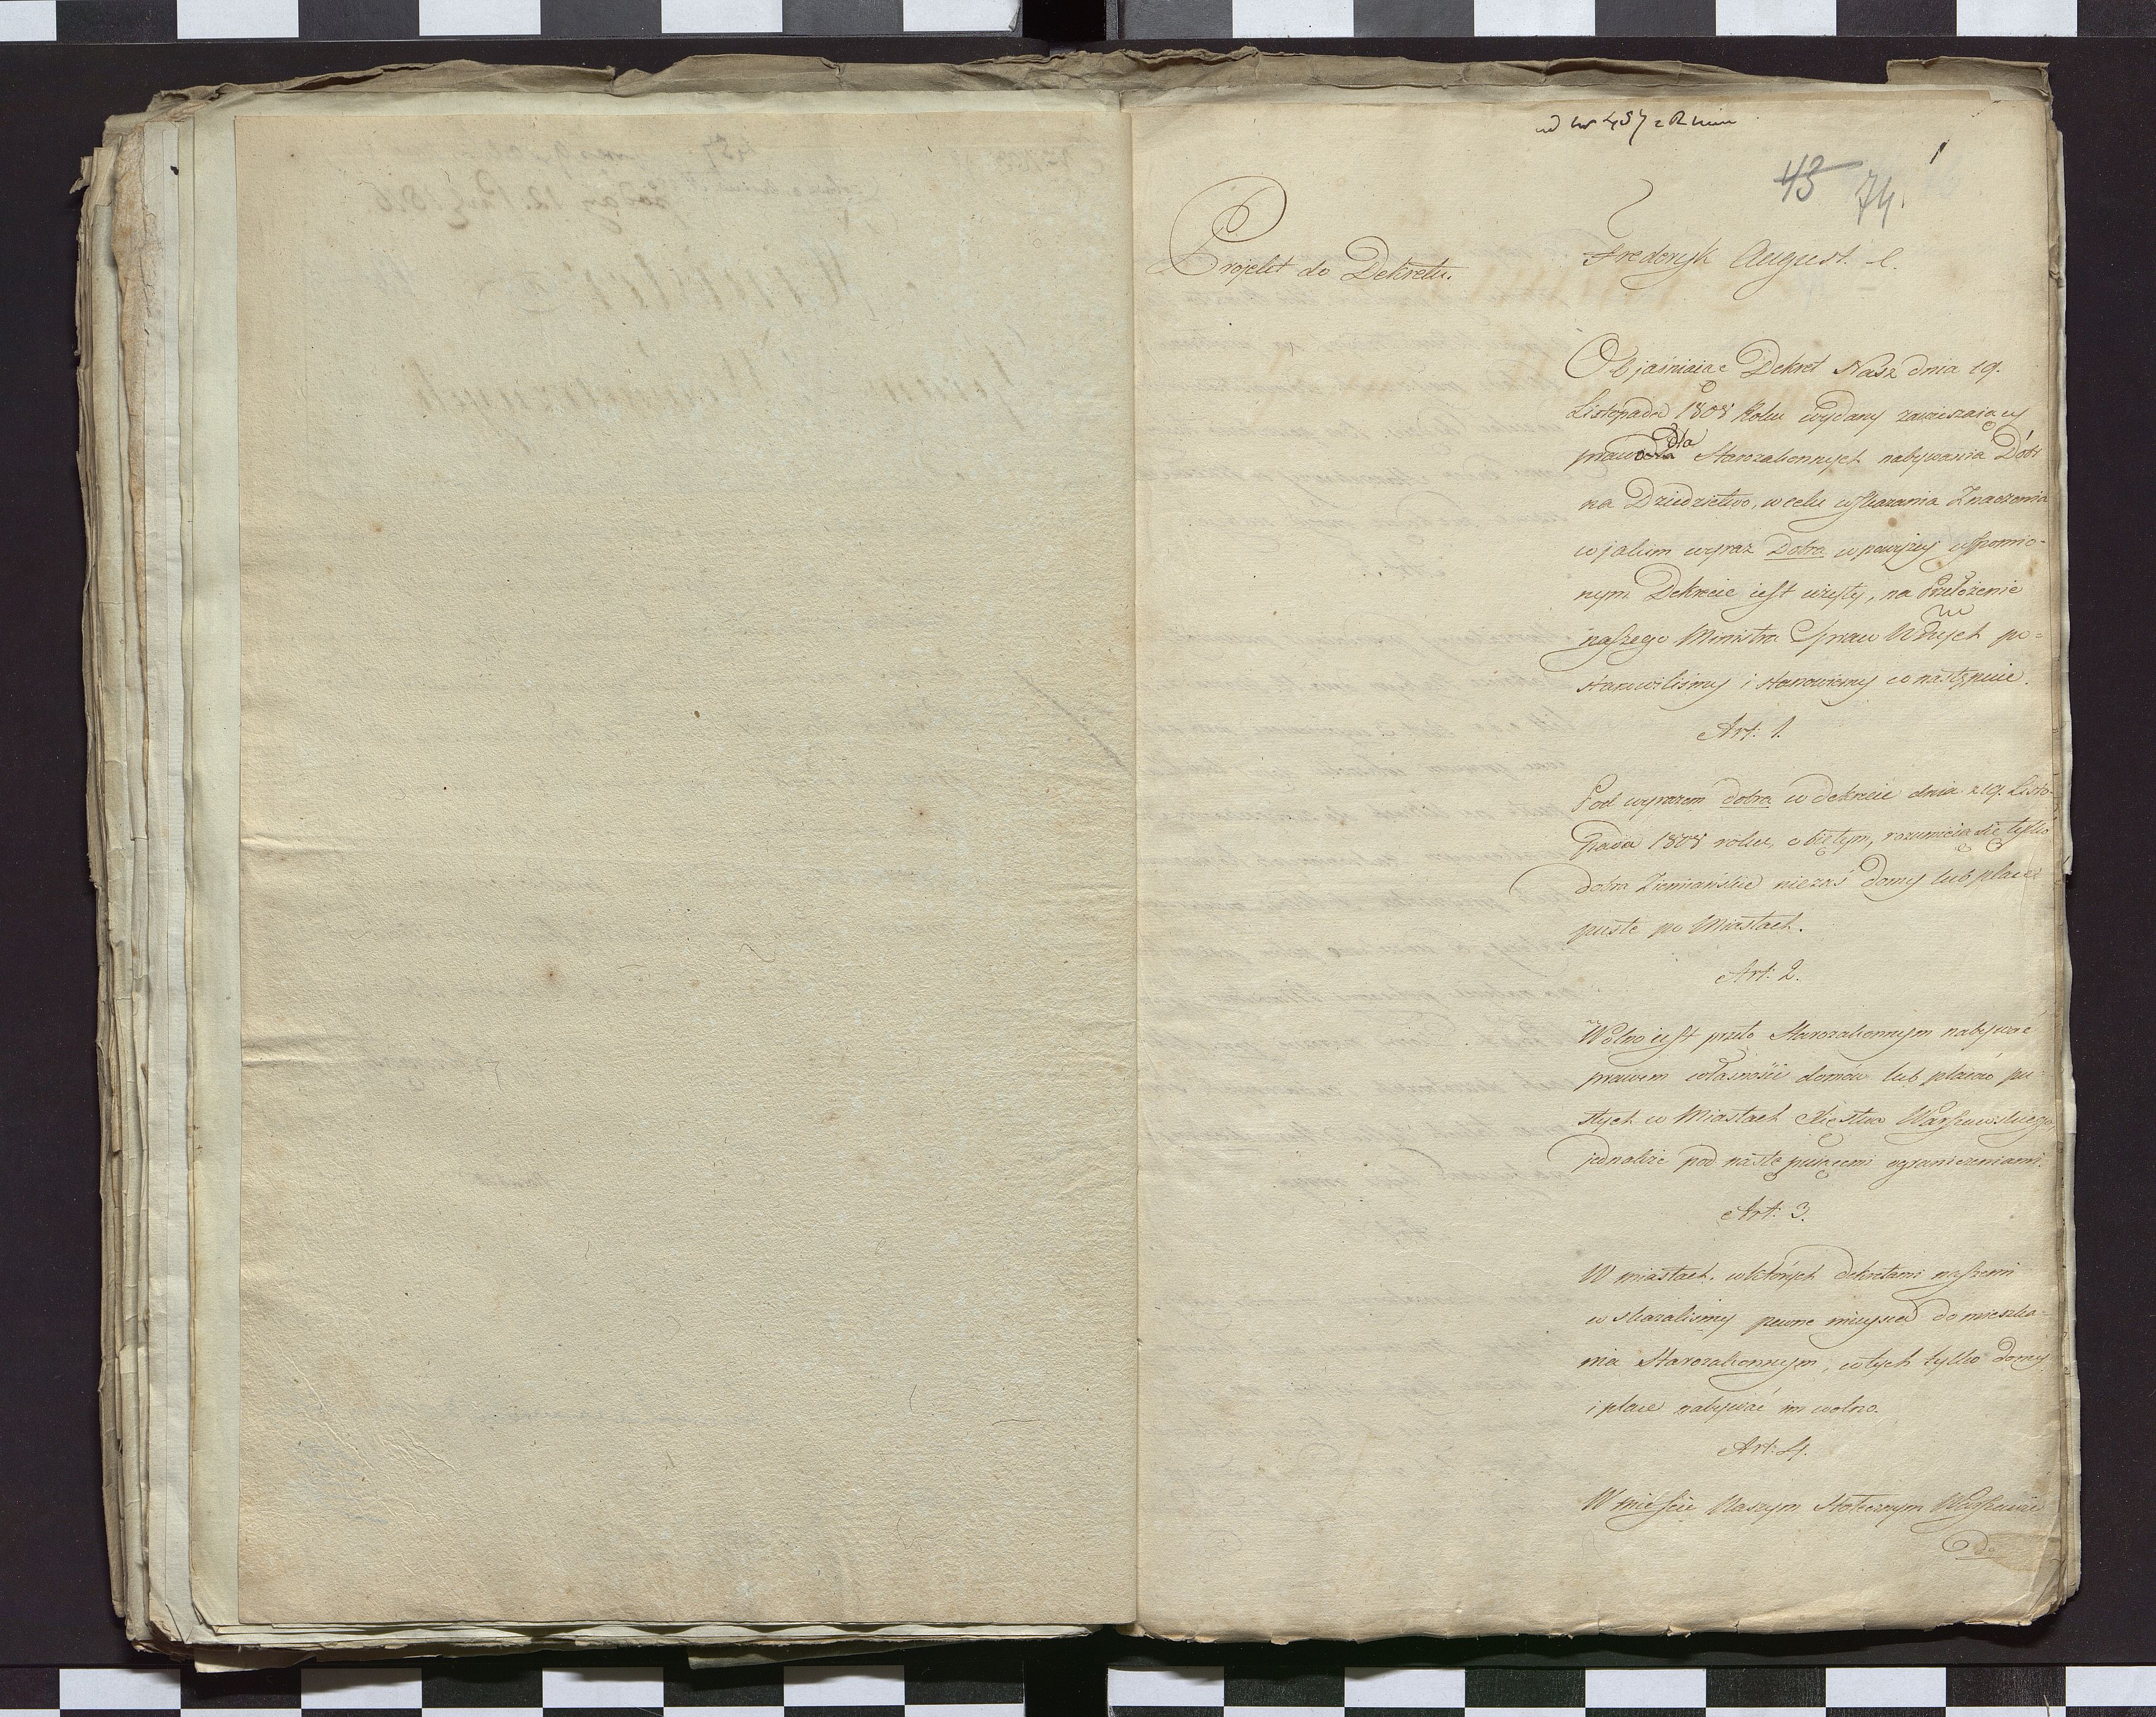 1
43 74.
Projekt do Dekretu.
Frederyk August &.
Objaśniaiąc Dekret Nasz dnia 19.
Listopada 1808 Roku wydany zawieszaiący
prawo dla Starozakonnych nabywania Dóbr
na Dziedzictwo, w celu wskazania Znaczenia
w jakim wyraz Dobra w powyżey wspomio-
nym Dekrecie iest wzięty, na Przełożenie
naszego Ministra Spraw Wznych po-
stanowiliśmy i stanowiemy co następuie.
Art: 1.
Pod wyrazem dobra w dekrecie dnia 19. Listo-
pada 1808 roku, obiętym, rozumieią się tylko
dobra Ziemiańskie nie zaś Domy lub place
puste po Miastach.
Art: 2.
Wolno iest przeto Starozakonnym nabywać
prawem własności domów lub placów pu-
stych w Miastach Xięstwa Warszawskiego,
jednakże pod następuiącemi ograniczeniami.
Art: 3.
W miastach, w których dekretami naszemi
wskazaliśmy pewne mieysca do mieszka-
nia Starozakonnym, w tych tylko domy
i place nabywać im wolno.
Art: 4.
W mieście Naszym Stołecznym Warszawie
do